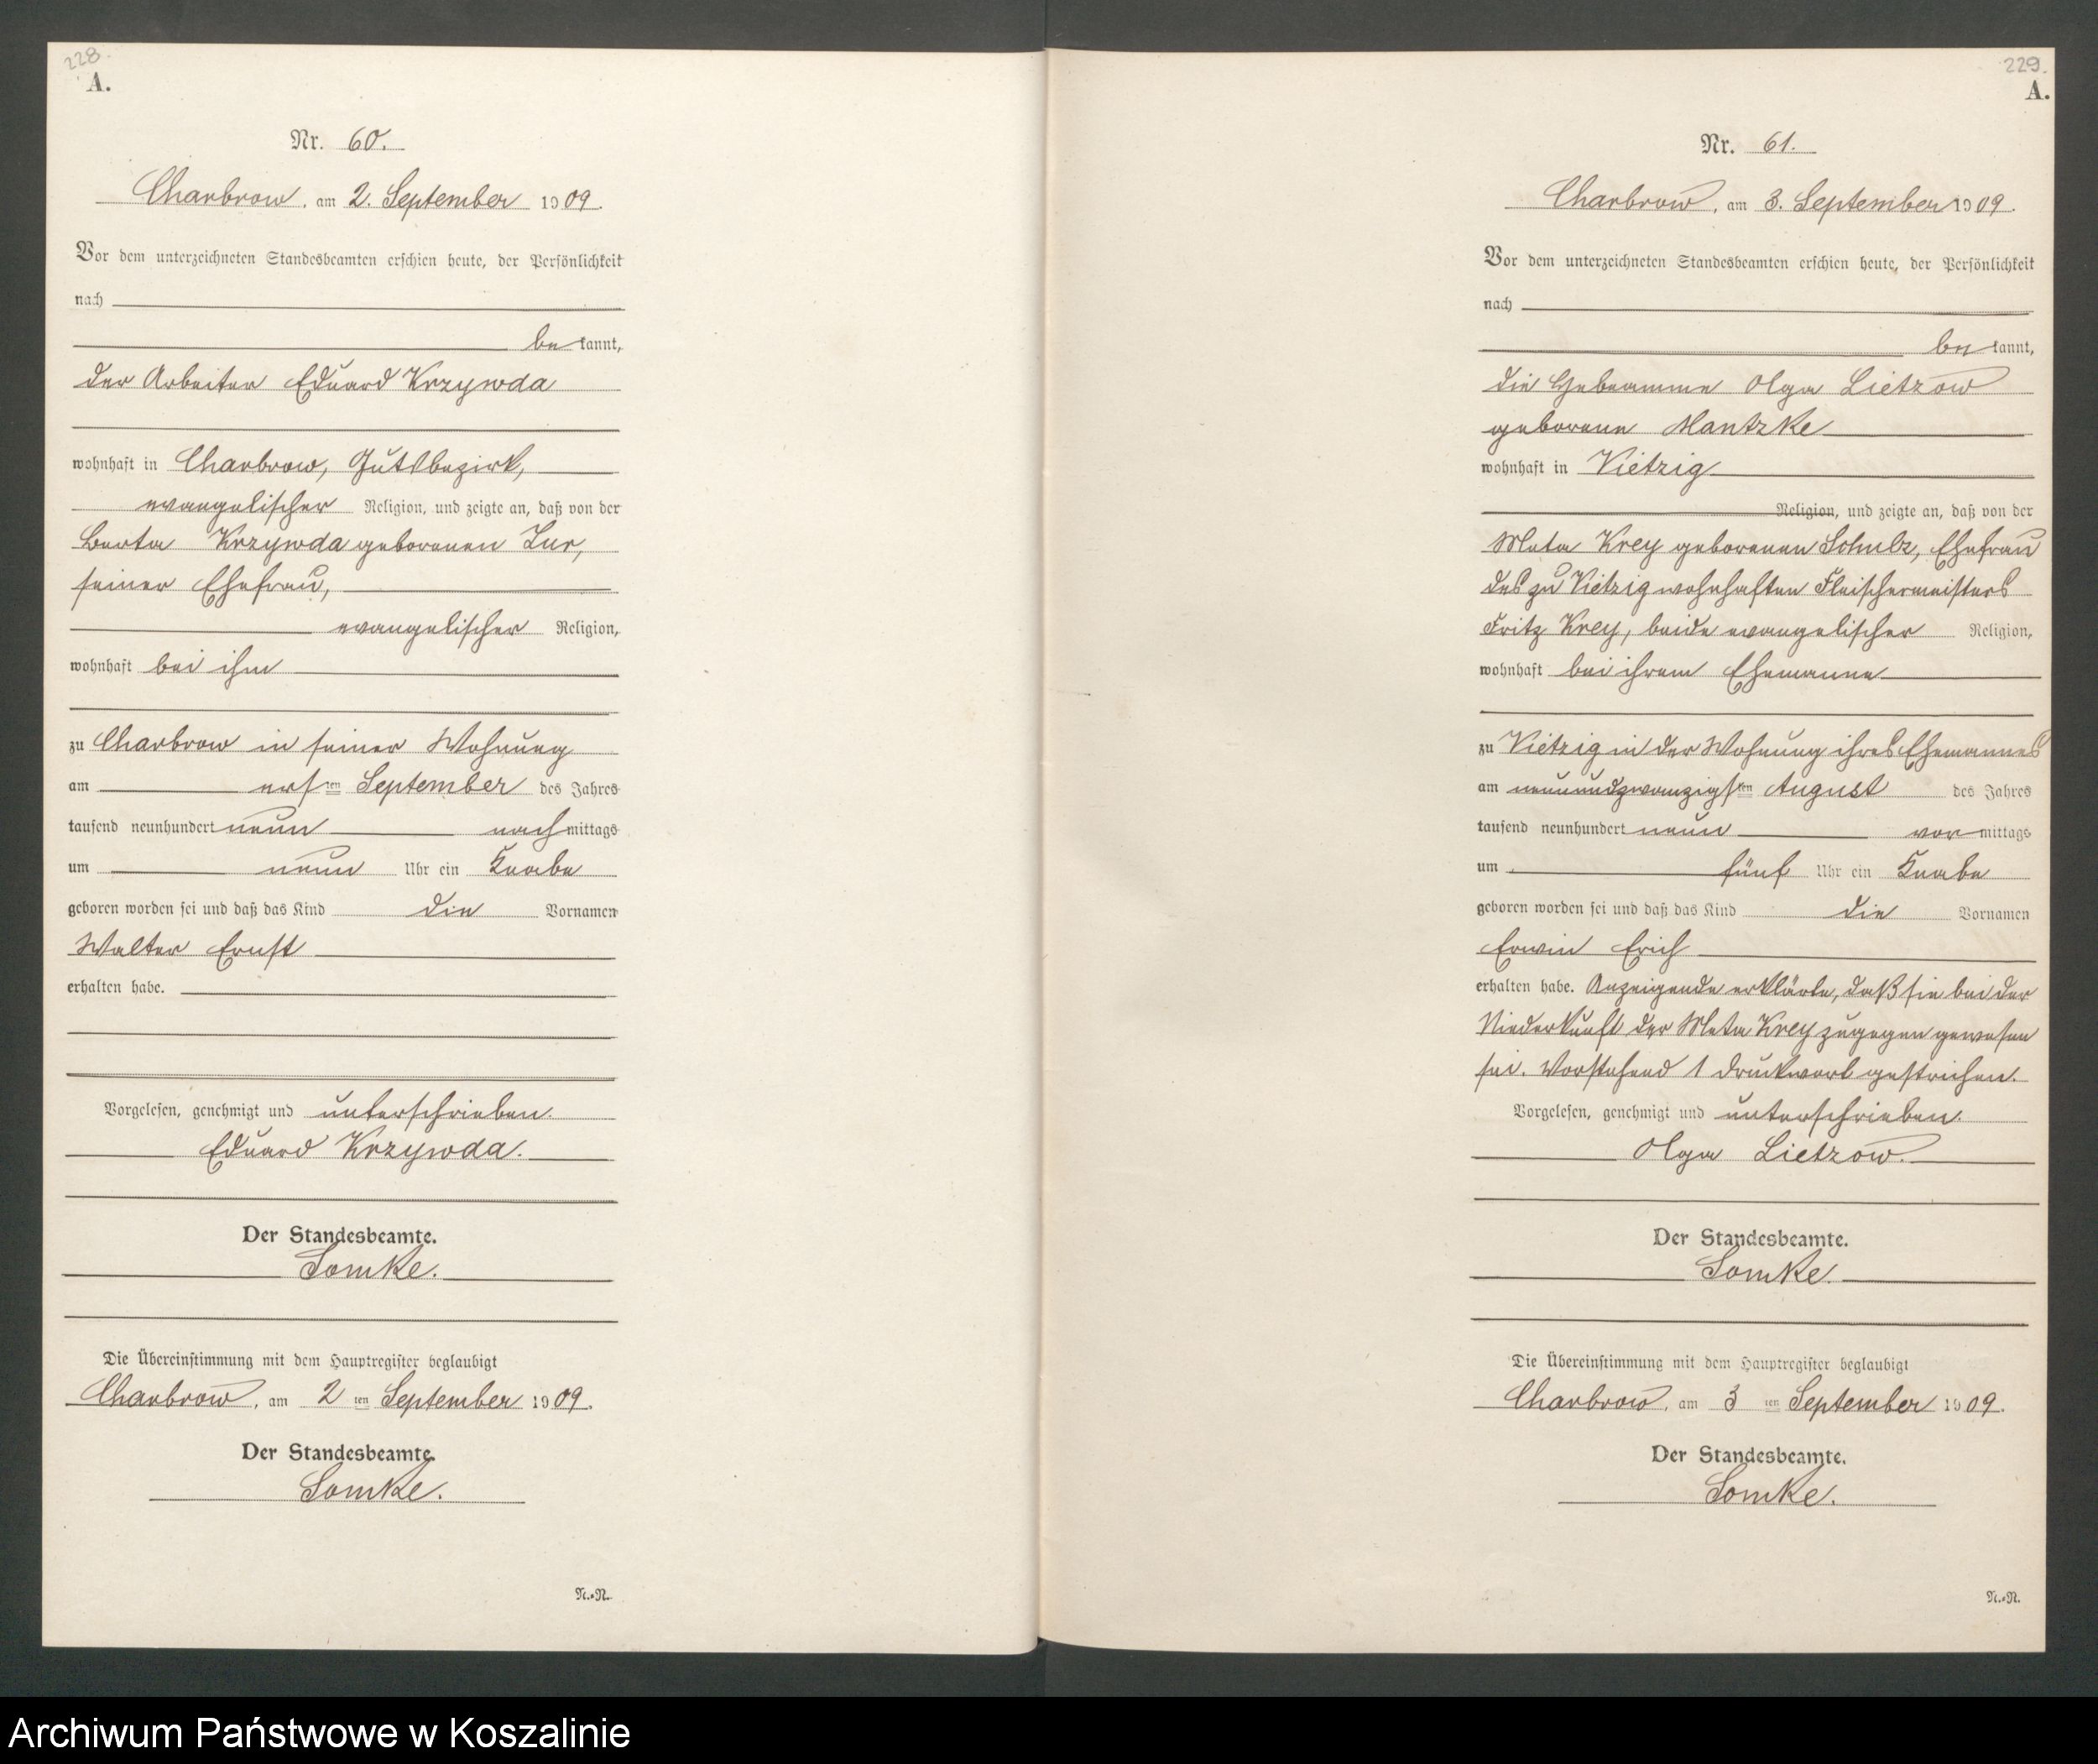 228.
A.
Nr. 60.
Charbrow, am 2. September 1909.
Vor dem unterzeichneten Standesbeamten erschien heute, der Persönlichkeit
nach
be kannt,
der Arbeiter Eduard Krzywda
wohnhaft in Charbrow, Gutsbezirk,
evangelischer Religion, und zeigte an, daß von der
Berta Krzywda geborenen Zur,
seiner Ehefrau,
evangelischer Religion,
wohnhaft bei ihm
zu Charbrow in seiner Wohnung
am ersten September des Jahres
tausend neunhundert neun nachmittags
um neun Uhr ein Knabe
geboren worden sei und daß das Kind die Vornamen
Walter Ernst
erhalten habe.
Vorgelesen, genehmigt und unterschrieben.
Eduard Krzywda.
Der Standesbeamte.
Lomke.
Die Übereinstimmung mit dem Hauptregister beglaubigt
Charbrow, am 2 ten September 1909.
Der Standesbeamte.
Lomke.
N.-N.
229.
A.
Nr. 61.
Charbrow, am 3. September 1909.
Vor dem unterzeichneten Standesbeamten erschien heute, der Persönlichkeit
nach
be kannt,
die Hebeamme Olga Lietzow
geborene Mantzke
wohnhaft in Vietzig
Religion, und zeigte an, daß von der
Meta Krey geborenen Schulz, Ehefrau
des zu Vietzig wohnhaften Fleischermeisters
Fritz Krey, beide evangelischer Religion,
wohnhaft bei ihrem Ehemanne
zu Vietzig in der Wohnung ihres Ehemannes
am neunundzwanzigsten August des Jahres
tausend neunhundert neun vormittags
um fünf Uhr ein Knabe
geboren worden sei und daß das Kind die Vornamen
Erwin Erich
erhalten habe. Anzeigende erklärte, daß sie bei der
Niederkunft der Meta Krey zugegen gewesen
sei. Vorstehend 1 Druckwort gestrichen.
Vorgelesen, genehmigt und unterschrieben.
Olga Lietzow.
Der Standesbeamte.
Lomke.
Die Übereinstimmung mit dem Hauptregister beglaubigt
Charbrow, am 3 ten September 1909.
Der Standesbeamte.
Lomke.
N.-N.
Archiwum Państwowe w Koszalinie